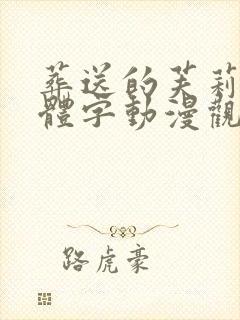 葬送的芙莉
體字動漫觀
路虎豪